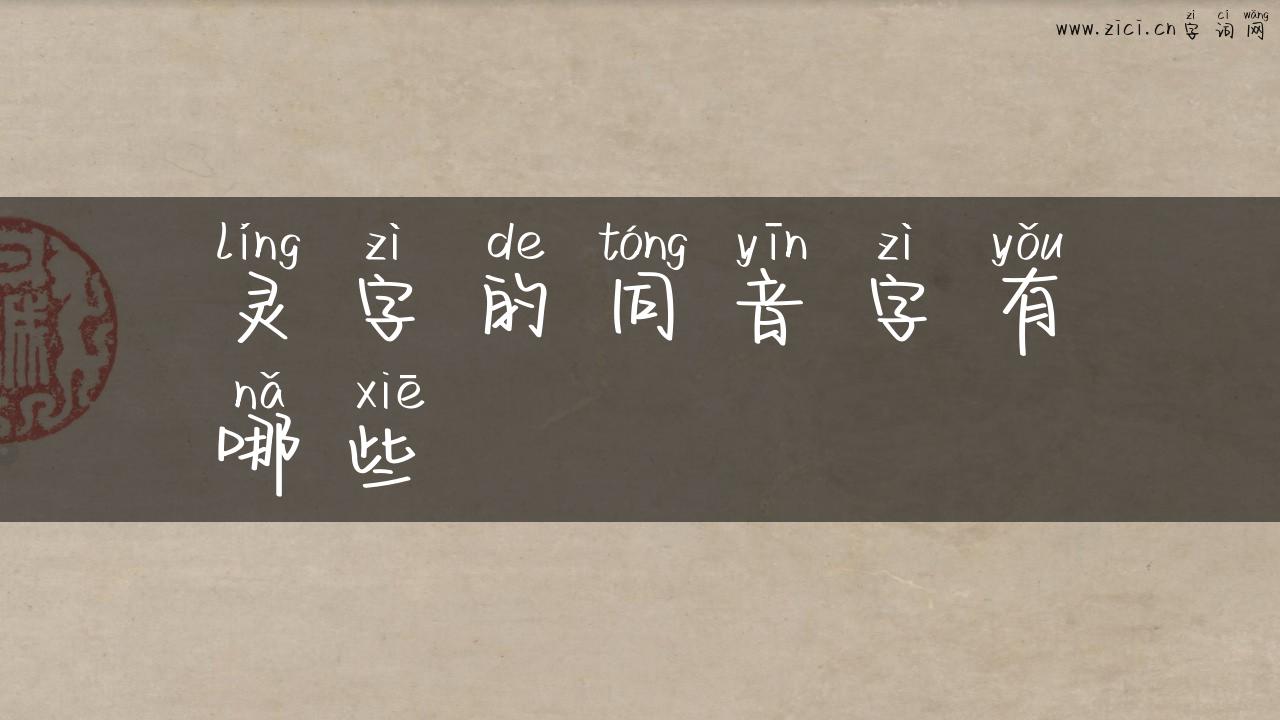 zì cí wǎng
www.zici.cn字词网
líng zì de tóng yīn zì yǒu
灵字的同音字有
nǎ xiē
哪些